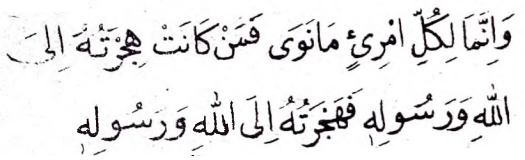 وَاِنَّمَا لِكُلِّ امْرِئٍ مَانَوَى فَمَنْ كَانَتْ هِجْرَتُهُ اِلىَ
اللهِ وَرَسُولِهٖ فَهِجْرَتُهُ اِلَى اللهِ وَرَسُولِهٖ